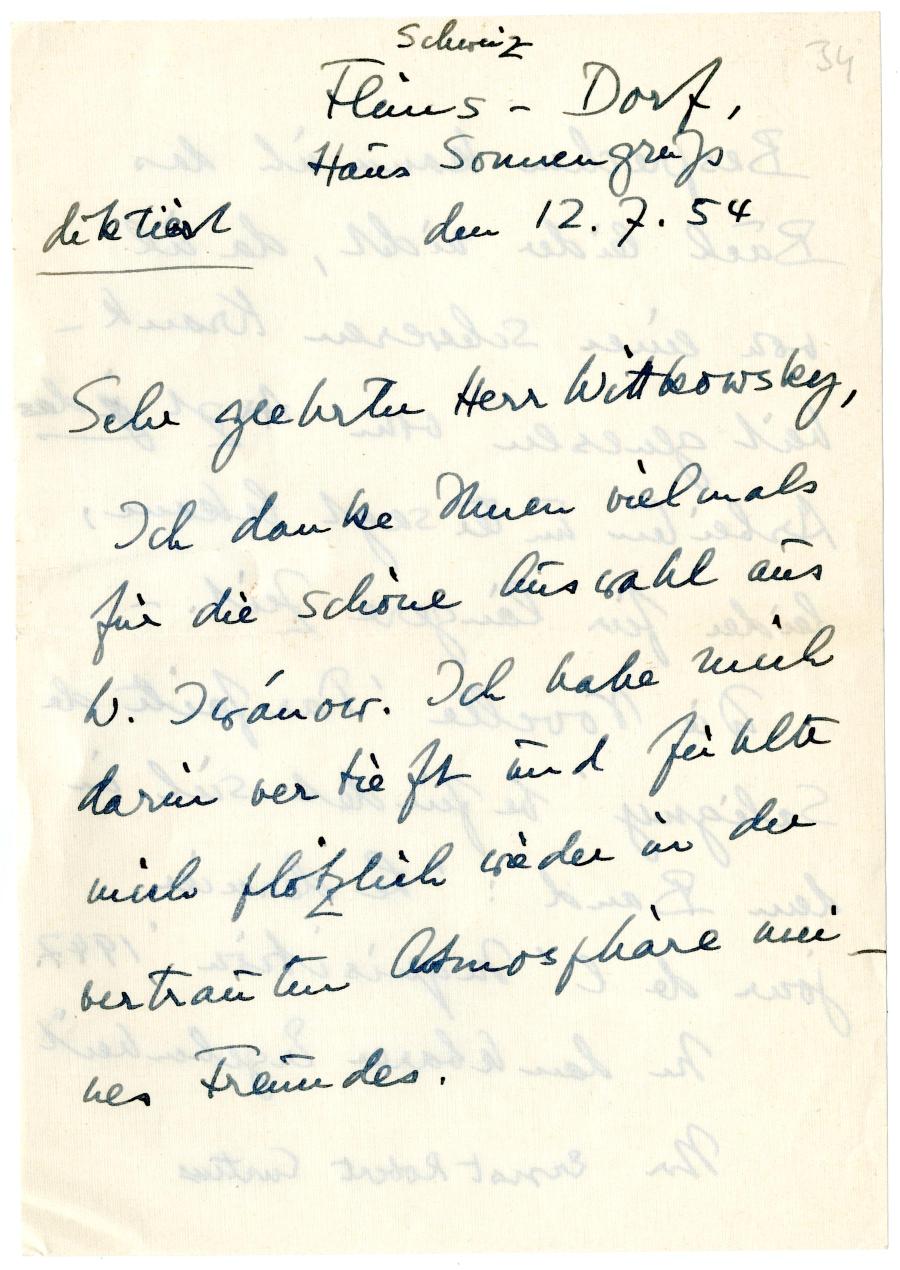 34
Schweiz
Flims - Dorf,
Haus Sonnengruß
diktiert den 12. 7. 54
Sehr geehrter Herr Wittkowsky,
Ich danke Ihnen vielmals
für die schöne Auswahl aus
W. Iwánow. Ich habe mich
darin vertieft und fühlte
mich plötzlich wieder in der
vertrauten Atmosphäre mei-
nes Freundes.